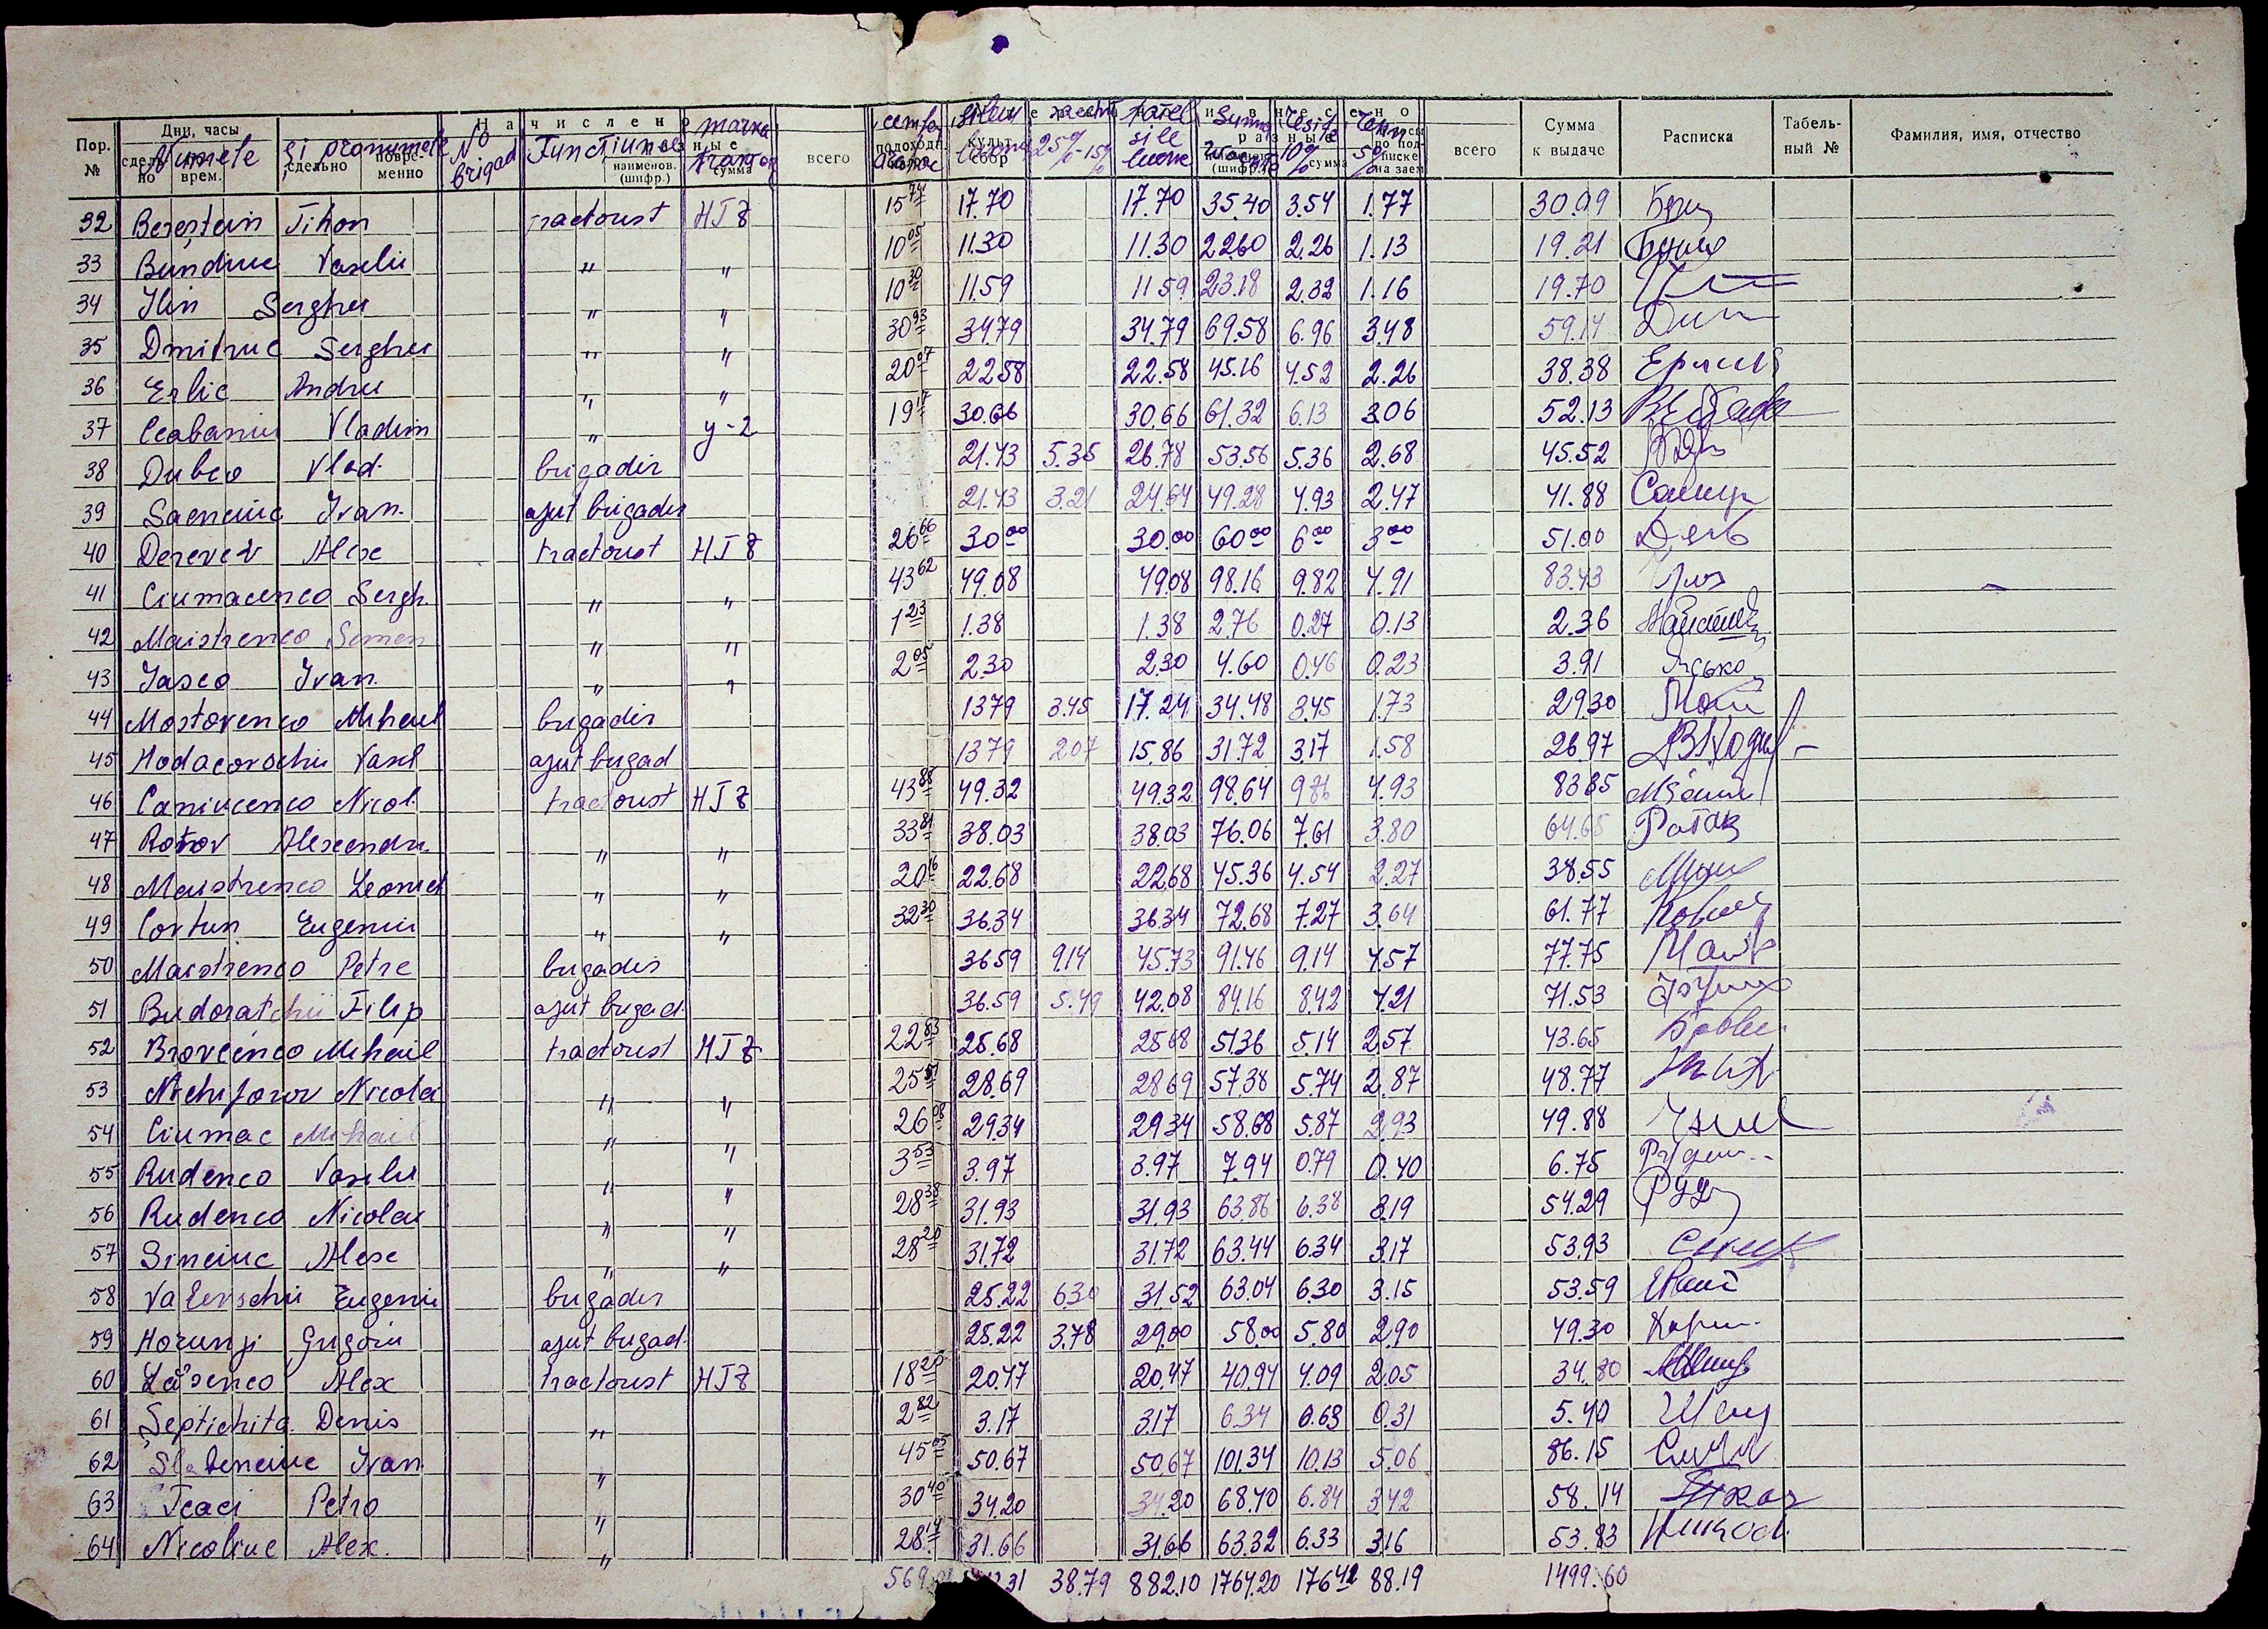 Начислено
Удержано и внесено
Пор. № Дни, часы сдельно врем. сдельно повременно наименов. (шифр.) сумма всего подоходн. культсбор разные сумма по подписке на заем всего Сумма к выдаче Расписка Табельный № Фамилия, имя, отчество
Numele și pronumele No brigad Funcțiunea marka traktor zilele lucrate 25% - 15% zile lucrate Suma 10% 5%
32 Bereștean Tihon tractorist HTZ 15 74 17.70 17.70 35.40 3.54 1.77 30.09
33 Bundiuc Vasilii " " 10 05 11.30 11.30 22.60 2.26 1.13 19.21
34 Ilin Serghei " " 10 30 11.59 11.59 23.18 2.32 1.16 19.70
35 Dmitriuc Serghei " " 30 93 34.79 34.79 69.58 6.96 3.48 59.14
36 Erlic Andrei " " 20 07 22.58 22.58 45.16 4.52 2.26 38.38
37 Ceabaniu Vladim " У-2 19 17 30.66 30.66 61.32 6.13 3.06 52.13
38 Dubco Vlad. brigadir 21.43 5.35 26.78 53.56 5.36 2.68 45.52
39 Saenciuc Ivan. ajut brigadir 21.43 3.21 24.64 49.28 4.93 2.47 41.88
40 Derevev Alex tractorist HTZ 26 66 30 00 30.00 60 00 6 00 3 00 51.00
41 Ciumacenco Sergh. " " 43 62 49.08 49.08 98.16 9.82 4.91 83.43
42 Maistrenco Semen " " 1 23 1.38 1.38 2.76 0.27 0.13 2.36
43 Iasco Ivan. " " 2 05 2.30 2.30 4.60 0.46 0.23 3.91 Ясько
44 Mostovenco Mihail brigadir 13.79 3.45 17.24 34.48 3.45 1.73 29.30
45 Hodacovschii Vasil ajut brigad 13.79 2.07 15.86 31.72 3.17 1.58 26.97
46 Canivcenco Nicol. tractorist HTZ 43 88 49.32 49.32 98.64 9.86 4.93 83.85
47 Rotov Alexandru. " " 33 81 38.03 38.03 76.06 7.61 3.80 64.65
48 Maistrenco Leonid " " 20 16 22.68 22.68 45.36 4.54 2.27 38.55
49 Covtun Eugeniu " " 32 30 36.34 36.34 72.68 7.27 3.64 61.77
50 Maistrenco Petre brigadir 36.59 9.14 45.73 91.46 9.14 4.57 77.75
51 Budoratchii Filip ajut brigad. 36.59 5.49 42.08 84.16 8.42 4.21 71.53
52 Brovcenco Mihail tractorist HTZ 22 83 25.68 25.68 51.36 5.14 2.57 43.65
53 Nichiforov Nicolai " " 25 51 28.69 28.69 57.38 5.74 2.87 48.77
54 Ciumac Mihail " " 26 08 29.34 29.34 58.68 5.87 2.93 49.88
55 Rudenco Vasilii " " 3 53 3.97 3.97 7.94 0.79 0.40 6.75
56 Rudenco Nicolai " " 28 38 31.93 31.93 63.86 6.38 3.19 54.29
57 Sinciuc Alex " " 28 20 31.72 31.72 63.44 6.34 3.17 53.93
58 Valevschii Eugeniu brigadir 25.22 6.30 31.52 63.04 6.30 3.15 53.59
59 Horunji Grigoriu ajut brigad. 25.22 3.78 29.00 58.00 5.80 2.90 49.30
60 Lăsenco Alex tractorist HTZ 18 20 20.47 20.47 40.94 4.09 2.05 34.80
61 Șeptichita Denis " 2 82 3.17 3.17 6.34 0.63 0.31 5.40
62 Slatenciuc Ivan " 45 05 50.67 50.67 101.34 10.13 5.06 86.15
63 Tcaci Petro " 30 40 34.20 34.20 68.40 6.84 3.42 58.14 Ткач
64 Nicoliuc Alex. " 28 14 31.66 31.66 63.32 6.33 3.16 53.83
569 38.79 882.10 1764.20 176 42 88.19 1499.60